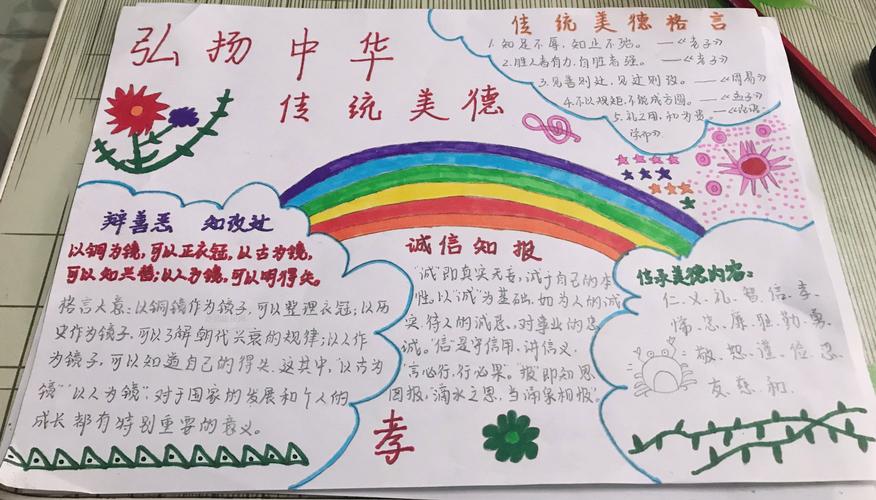 弘扬中华
传统美德
传统美德格言
1.知足不辱,知止不殆。——《老子》
2.胜人者有力,自胜者强。——《老子》
3.见善则迁,见过则改。——《周易》
4.不以规矩,不能成方圆。——《孟子》
5.礼之用,和为贵。——《论语·
学而》
辩善恶 知改过
以铜为镜,可以正衣冠,以古为镜,
可以知兴替;以人为镜,可以明得失。
格言大意:以铜镜作为镜子,可以整理衣冠;以历
史作为镜子,可以了解朝代兴衰的规律;以人作
为镜子,可以知道自己的得失.这其中,“以古为
镜”“以人为镜”:对于国家的发展和个人的
成长都有特别重要的意义。
诚信知报
“诚”即真实无妄,诚于自己的本
性。以“诚”为基础,如为人的诚
实、待人的诚恳、对事业的忠
诚。“信”是守信用,讲信义,
“言必行,行必果。”“报”即知恩
回报,“滴水之恩,当涌泉相报”。
孝
传承美德内容:
仁、义、礼、智、信、孝、
悌、忠、廉、耻、勤、勇、
敬、恕、谨、俭、忍、
友、慈、和.